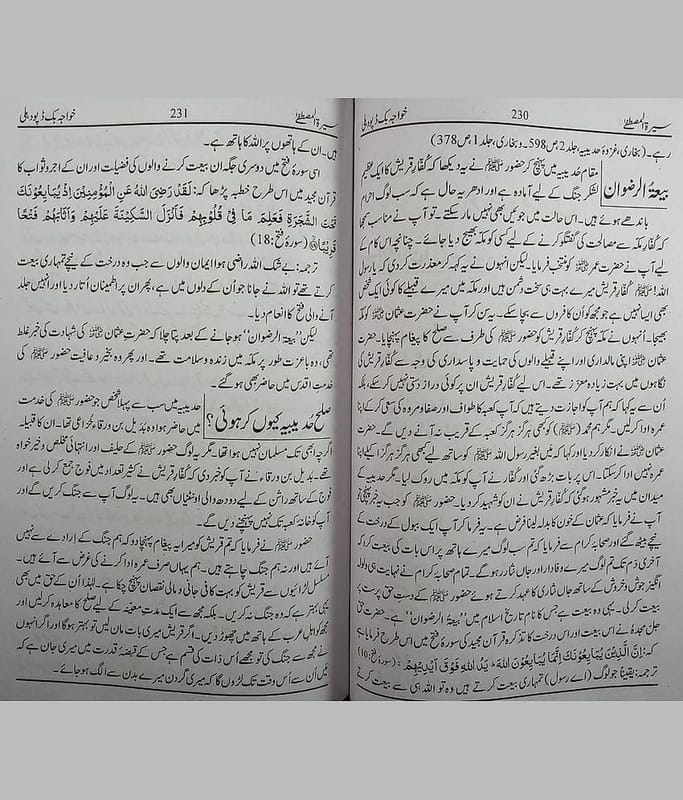 سیرۃ المصطفےٰ 230 خواجہ بک ڈپو دہلی
رہے۔ (بخاری، غزوۂ حدیبیہ، جلد 2 ص 598۔ و بخاری، جلد 1، ص 378)
بیعۃ الرضوان
مقام حدیبیہ میں پہنچ کر حضور ﷺ نے یہ دیکھا کہ کفارِ قریش کا ایک عظیم
لشکر جنگ کے لیے آمادہ ہے اور ادھر یہ حال ہے کہ سب لوگ احرام
باندھے ہوئے ہیں۔ اس حالت میں جوئیں بھی نہیں مار سکتے۔ تو آپ نے مناسب سمجھا
کہ کفارِ مکہ سے مصالحت کی گفتگو کرنے کے لیے کسی کو مکہ بھیج دیا جائے۔ چنانچہ اس کام کے
لیے آپ نے حضرت عمر کو منتخب فرمایا۔ لیکن انہوں نے یہ کہہ کر معذرت کر دی کہ یا رسول
اللہ! کفارِ قریش میرے بہت ہی سخت دشمن ہیں اور مکہ میں میرے قبیلے کا کوئی ایک شخص
بھی ایسا نہیں ہے جو مجھ کو ان کافروں سے بچا سکے۔ یہ سن کر آپ نے حضرت عثمان کو مکہ
بھیجا۔ انہوں نے مکہ پہنچ کر کفارِ قریش کو حضور ﷺ کی طرف سے صلح کا پیغام پہنچایا۔ حضرت
عثمان اپنی مالداری اور اپنے قبیلے والوں کی حمایت و پاسداری کی وجہ سے کفارِ قریش کی
نگاہوں میں بہت زیادہ معزز تھے۔ اس لیے کفارِ قریش ان پر کوئی دراز دستی نہیں کر سکے، بلکہ
اُن سے یہ کہا کہ ہم آپ کو اجازت دیتے ہیں کہ آپ کعبہ کا طواف اور صفا و مروہ کی سعی کر کے اپنا
عمرہ ادا کر لیں۔ مگر ہم محمد (ﷺ) کو کبھی ہرگز ہرگز کعبہ کے قریب نہ آنے دیں گے۔ حضرت
عثمان نے انکار کر دیا اور کہا کہ میں بغیر رسول اللہ ﷺ کو ساتھ لیے کبھی ہرگز ہرگز اکیلے اپنا
عمرہ نہیں ادا کر سکتا۔ اس پر بات بڑھ گئی اور کفار نے آپ کو مکہ میں روک لیا۔ مگر حدیبیہ کے
میدان میں یہ خبر مشہور ہو گئی کہ کفارِ قریش نے ان کو شہید کر دیا۔ حضور ﷺ کو جب یہ خبر پہنچی تو
آپ نے فرمایا کہ عثمان کے خون کا بدلہ لینا فرض ہے۔ یہ فرما کر آپ ایک ببول کے درخت کے
نیچے بیٹھ گئے اور صحابۂ کرام سے فرمایا کہ تم سب لوگ میرے ہاتھ پر اس بات کی بیعت کرو کہ
آخری دم تک تم لوگ میرے وفادار اور جاں نثار رہو گے۔ تمام صحابۂ کرام نے نہایت ہی ولولہ
انگیز جوش و خروش کے ساتھ جاں نثاری کا عہد کرتے ہوئے حضور ﷺ کے دستِ حق پرست پر
بیعت کر لی۔ یہی وہ بیعت ہے جس کا نام تاریخِ اسلام میں ”بیعۃ الرضوان“ ہے۔ حضرت حق
جل مجدہ نے اس بیعت اور اس درخت کا تذکرہ قرآن مجید کی سورۂ فتح میں اس طرح فرمایا ہے
کہ: اِنَّ الَّذِیْنَ یُبَایِعُوْنَكَ اِنَّمَا یُبَایِعُوْنَ اللهَ ؕ یَدُ اللهِ فَوْقَ اَیْدِیْهِمْ ۚ (سورۂ فتح:10)
ترجمہ: یقیناً جو لوگ (اے رسول) تمہاری بیعت کرتے ہیں وہ تو اللہ ہی سے بیعت کرتے
سیرۃ المصطفےٰ 231 خواجہ بک ڈپو دہلی
ہیں۔ ان کے ہاتھوں پر اللہ کا ہاتھ ہے۔
اسی سورۂ فتح میں دوسری جگہ ان بیعت کرنے والوں کی فضیلت اور ان کے اجر و ثواب کا
قرآن مجید میں اس طرح خطبہ پڑھا کہ: لَقَدْ رَضِیَ اللهُ عَنِ الْمُؤْمِنِیْنَ اِذْ یُبَایِعُوْنَكَ
تَحْتَ الشَّجَرَةِ فَعَلِمَ مَا فِیْ قُلُوْبِهِمْ فَاَنْزَلَ السَّكِیْنَةَ عَلَیْهِمْ وَاَثَابَهُمْ فَتْحًا
قَرِیْبًا (سورۂ فتح:18)
ترجمہ: بے شک اللہ راضی ہوا ایمان والوں سے جب وہ درخت کے نیچے تمہاری بیعت
کرتے تھے تو اللہ نے جانا جو اُن کے دلوں میں ہے، پھر ان پر اطمینان اُتار دیا اور انہیں جلد
آنے والی فتح کا انعام دیا۔
لیکن ”بیعۃ الرضوان“ ہو جانے کے بعد پتا چلا کہ حضرت عثمان کی شہادت کی خبر غلط
تھی، وہ باعزت طور پر مکہ میں زندہ و سلامت تھے۔ اور پھر وہ بخیر و عافیت حضور ﷺ کی
خدمت اقدس میں حاضر بھی ہو گئے۔
صلح حدیبیہ کیوں کر ہوئی؟
حدیبیہ میں سب سے پہلا شخص جو حضور ﷺ کی خدمت
میں حاضر ہوا وہ بُدیل بن ورقاء خزاعی تھا۔ ان کا قبیلہ
اگرچہ ابھی تک مسلمان نہیں ہوا تھا۔ مگر یہ لوگ حضور ﷺ کے حلیف اور انتہائی مخلص و خیر خواہ
تھے۔ بُدیل بن ورقاء نے آپ کو خبر دی کہ کفارِ قریش نے کثیر تعداد میں فوج جمع کر لی ہے اور
فوج کے ساتھ راشن کے لیے دودھ والی اونٹنیاں بھی ہیں۔ یہ لوگ آپ سے جنگ کریں گے اور
آپ کو خانۂ کعبہ تک نہیں پہنچنے دیں گے۔
حضور ﷺ نے فرمایا کہ تم قریش کو میرا یہ پیغام پہنچا دو کہ ہم جنگ کے ارادے سے نہیں
آئے ہیں اور نہ ہم جنگ چاہتے ہیں۔ ہم یہاں صرف عمرہ ادا کرنے کی غرض سے آئے ہیں۔
مسلسل لڑائیوں سے قریش کو بہت کافی جانی و مالی نقصان پہنچ چکا ہے۔ لہٰذا اُن کے حق میں بھی
یہی بہتر ہے کہ وہ جنگ نہ کریں۔ بلکہ مجھ سے ایک مدت معینہ کے لیے صلح کا معاہدہ کر لیں اور
مجھ کو اہل عرب کے ہاتھ میں چھوڑ دیں۔ اگر قریش میری بات مان لیں تو بہتر ہو گا اور اگر انہوں
نے مجھ سے جنگ کی تو مجھے اُس ذات کی قسم ہے جس کے قبضۂ قدرت میں میری جان ہے کہ
میں اُن سے اُس وقت تک لڑوں گا کہ میری گردن میرے بدن سے الگ ہو جائے۔